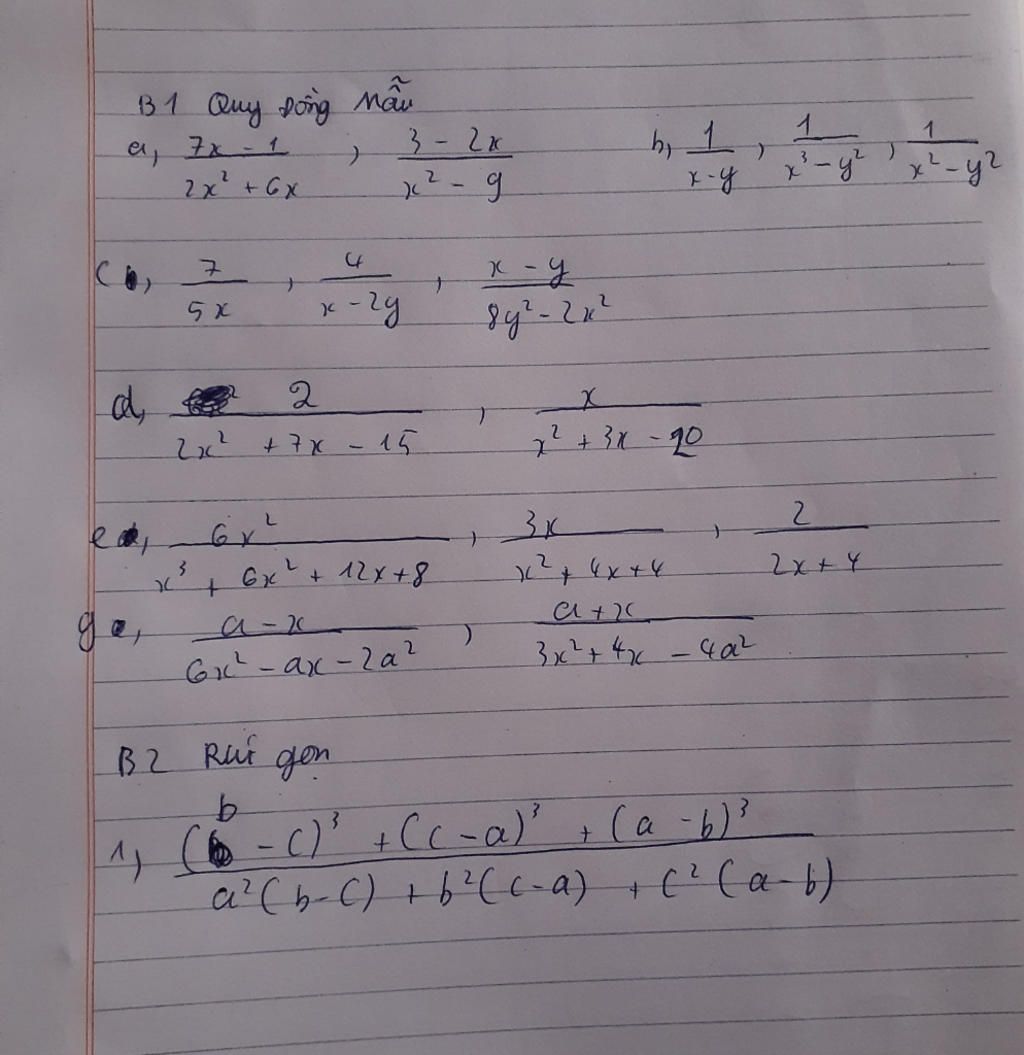 B1 Quy đồng Mẫu
a, (7x - 1)/(2x² + 6x) , (3 - 2x)/(x² - 9) b, 1/(x-y) , 1/(x³ - y²) , 1/(x² - y²)
c, 7/(5x) , 4/(x - 2y) , (x - y)/(8y² - 2x²)
d, 2/(2x² + 7x - 15) , x/(x² + 3x - 20)
e, 6x²/(x³ + 6x² + 12x + 8) , 3x/(x² + 4x + 4) , 2/(2x + 4)
g, (a - x)/(6x² - ax - 2a²) , (a + x)/(3x² + 4x - 4a²)
B2 Rút gọn
1, ((b - c)³ + (c - a)³ + (a - b)³)/(a²(b - c) + b²(c - a) + c²(a - b))